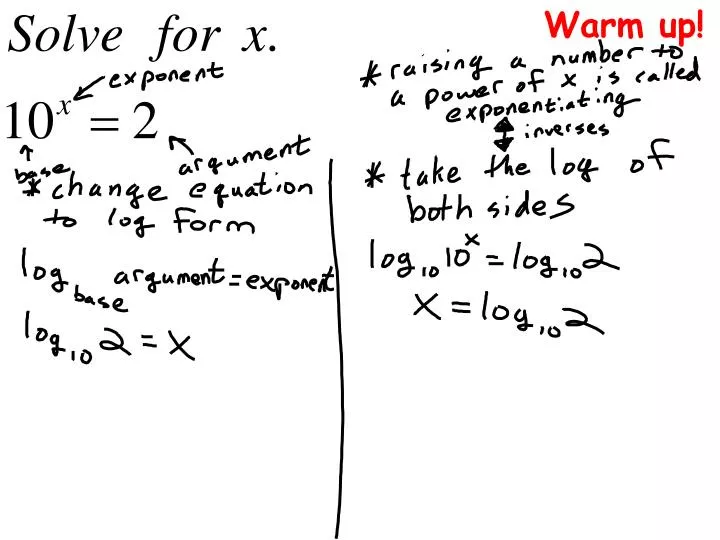 Solve for x.
Warm up!
10^x = 2
exponent
base
argument
*change equation
to log form
log_base argument = exponent
log_10 2 = x
*raising a number to
a power of x is called
exponentiating
inverses
*take the log of
both sides
log_10 10^x = log_10 2
x = log_10 2